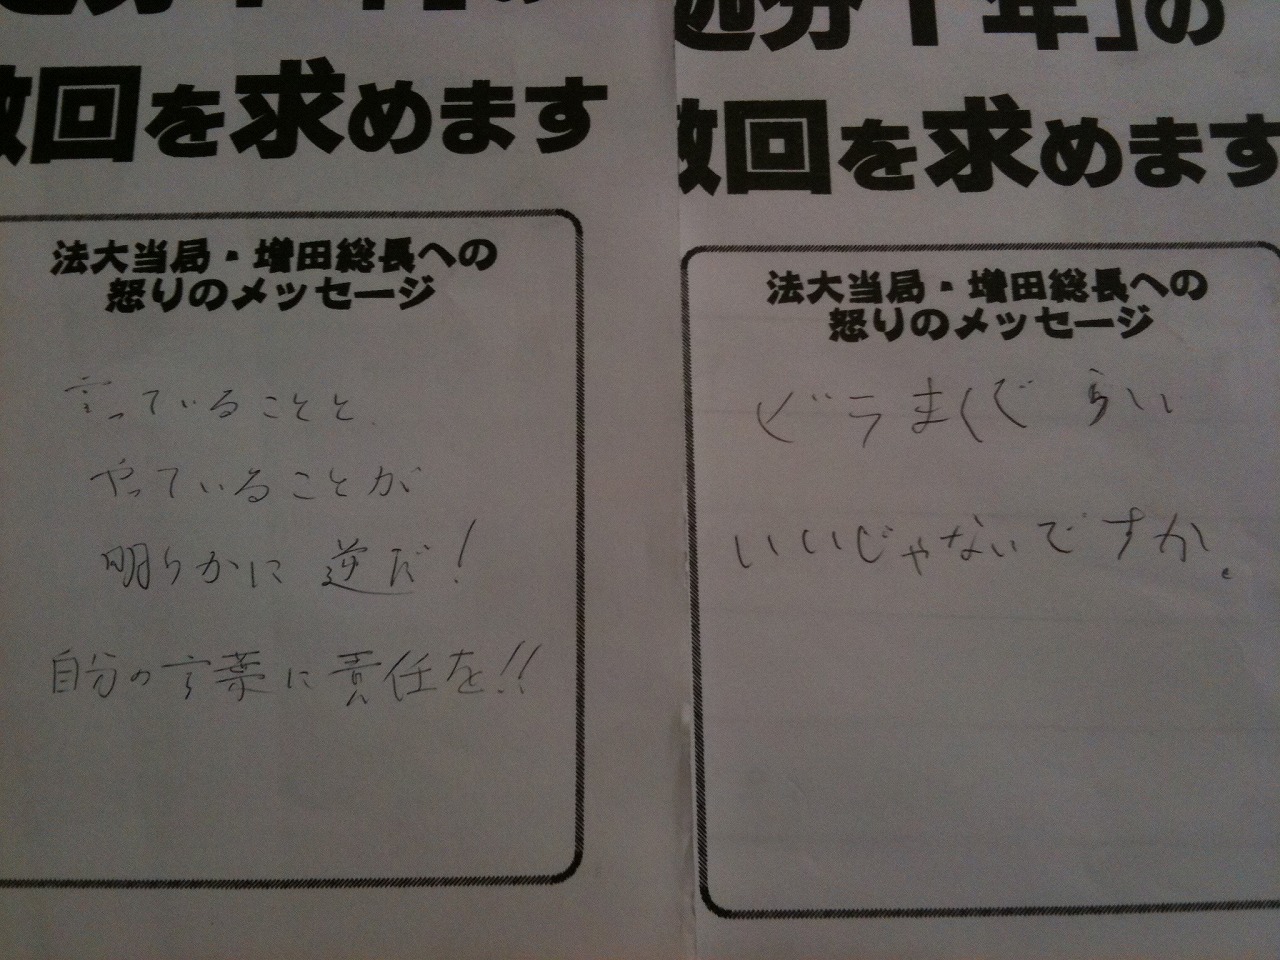 回を求めます
法大当局・増田総長への
怒りのメッセージ
言っていることと、
やっていることが
明らかに逆だ!
自分の言葉に責任を!!
処分1年」の
回を求めます
法大当局・増田総長への
怒りのメッセージ
ビラまくぐらい
いいじゃないですか。